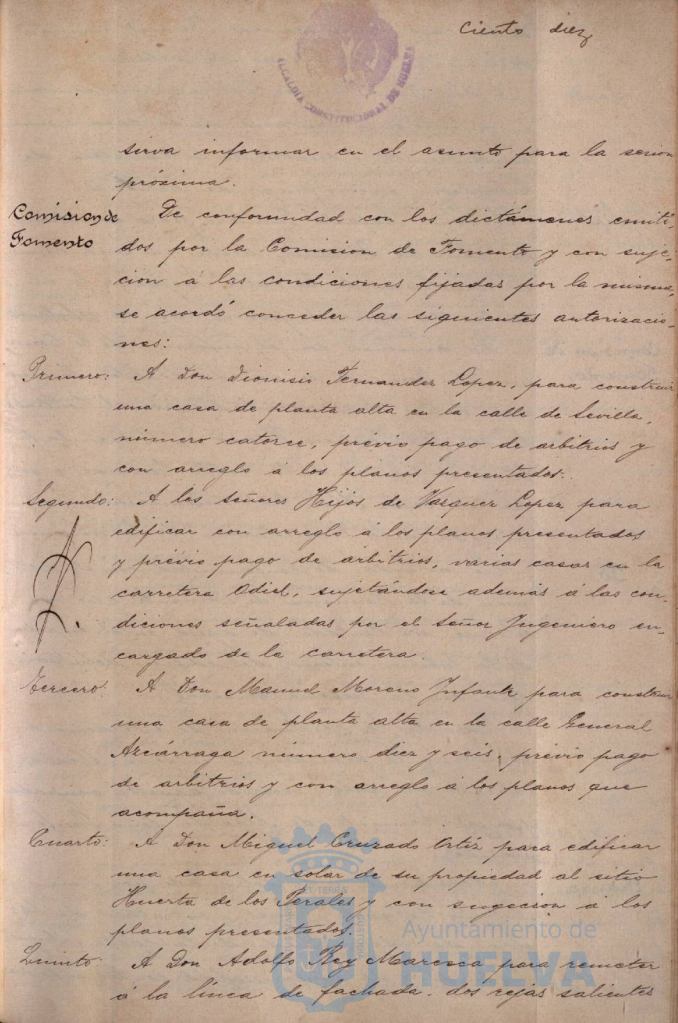 Ciento diez
ALCALDIA CONSTITUCIONAL DE HUELVA
sirva informar en el asunto para la sesion
próxima.
Comision de
Fomento
De conformidad con los dictámenes emiti-
dos por la Comision de Fomento y con suje-
cion á las condiciones fijadas por la misma,
se acordó conceder las siguientes autorizacio-
nes:
Primero: A Don Dionisio Fernandez Lopez, para construir
una casa de planta alta en la calle de Sevilla,
número catorce, prévio pago de arbitrios y
con arreglo á los planos presentados.
Segundo: A los señores Hijos de Vazquez Lopez para
edificar con arreglo á los planos presentados
y prévio pago de arbitrios, varias casas en la
carretera Odiel, sujetándose además á las con-
diciones señaladas por el señor Ingeniero en-
cargado de la carretera.
Tercero: A Don Manuel Moreno Infante para construir
una casa de planta alta en la calle General
Azcárraga número diez y seis, prévio pago
de arbitrios y con arreglo á los planos que
acompaña.
Cuarto: A Don Miguel Cruzado Ortiz para edificar
una casa en solar de su propiedad al sitio
Huerta de los Perales y con sugecion á los
planos presentados.
Quinto: A Don Adolfo Rey Maresca para remeter
á la línea de fachada, dos rejas salientes
Ayuntamiento de
HUELVA